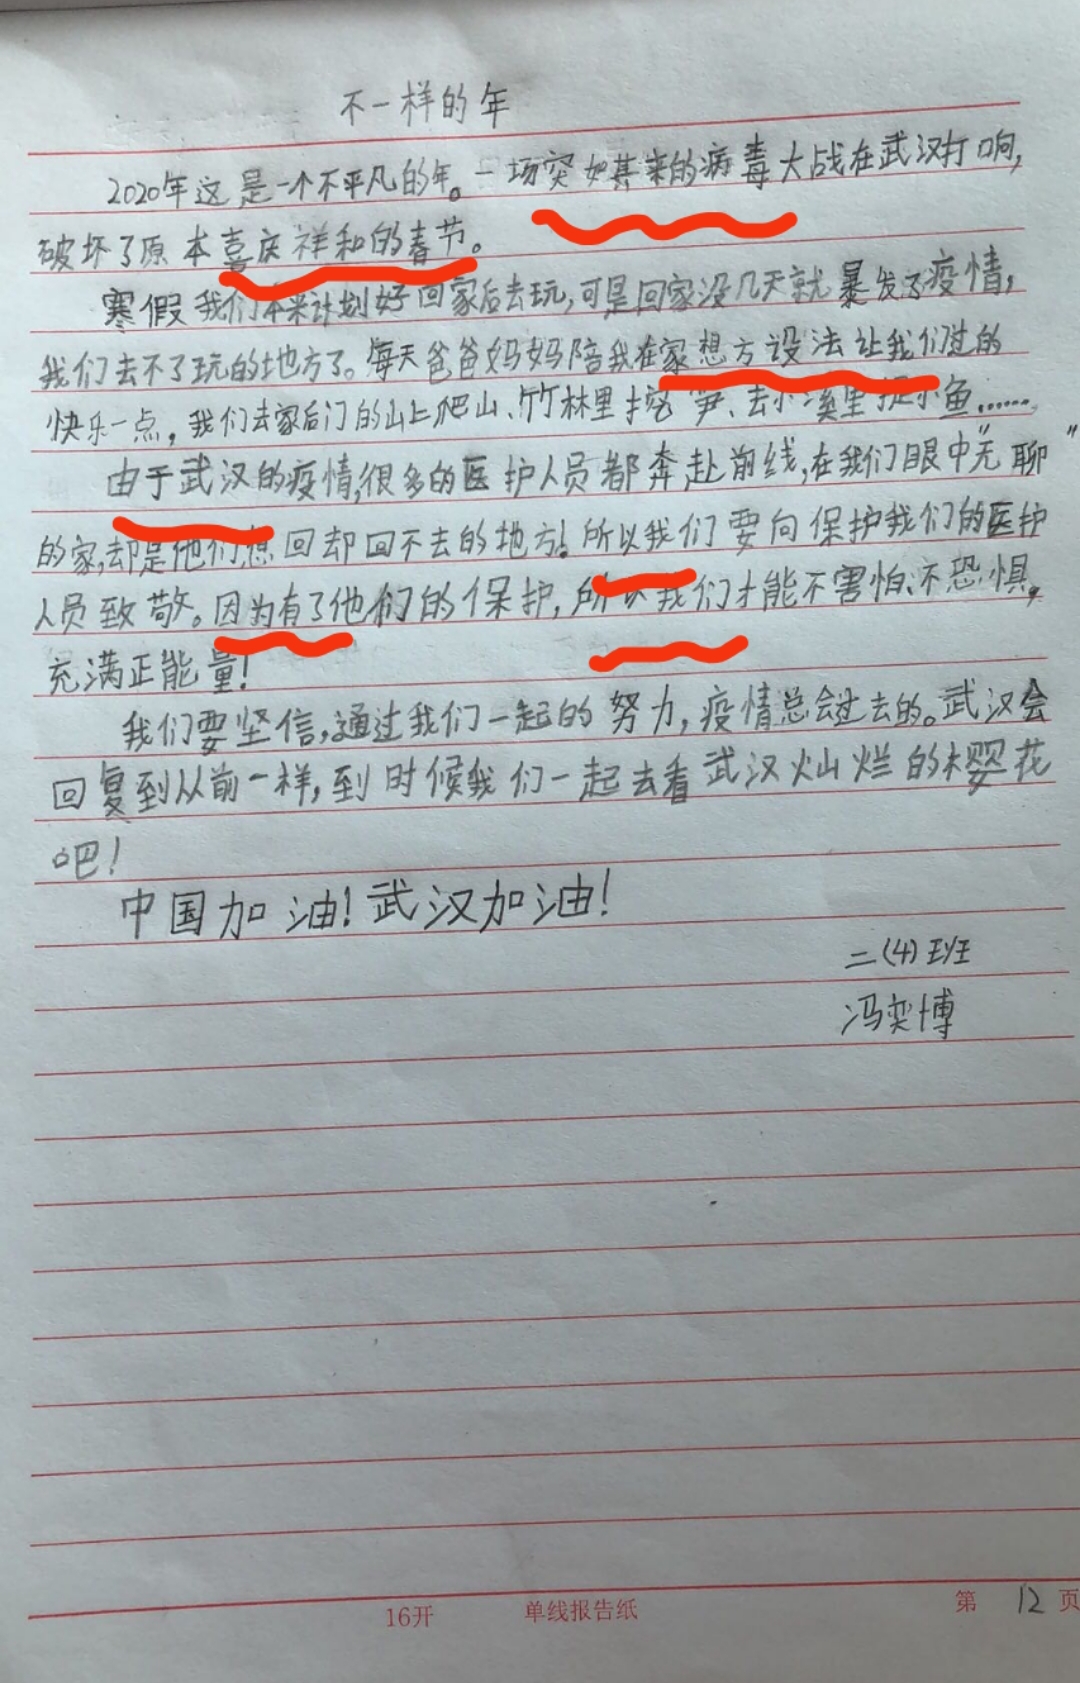 不一样的年
2020年这是一个不平凡的年。一场突如其来的病毒大战在武汉打响,
破坏了原本喜庆祥和的春节。
寒假我们本来计划好回家后去玩,可是回家没几天就暴发了疫情,
我们去不了玩的地方了。每天爸爸妈妈陪我在家想方设法让我们过的
快乐一点,我们去家后门的山上爬山、竹林里挖笋、去小溪里捉小鱼……
由于武汉的疫情,很多的医护人员都奔赴前线,在我们眼中"无聊"
的家,却是他们想回却回不去的地方!所以我们要向保护我们的医护
人员致敬。因为有了他们的保护,所以我们才能不害怕、不恐惧,
充满正能量!
我们要坚信,通过我们一起的努力,疫情总会过去的。武汉会
回复到从前一样,到时候我们一起去看武汉灿烂的樱花
吧!
中国加油!武汉加油!
二(4)班
冯奕博
16开 单线报告纸 第 12 页